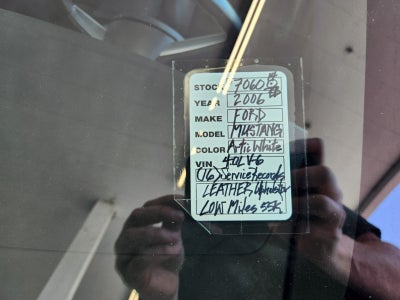 STOCK 7060B
YEAR 2006
MAKE FORD
MODEL MUSTANG
COLOR Artic White
VIN 4.0L V-6
(16) Service Records
LEATHER Upholstery
LOW Miles 55K